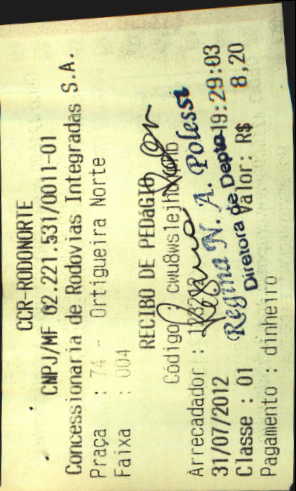 CCR-RODONORTE
CNPJ/MF 02.221.531/0011-01
Concessionaria de Rodovias Integradas S.A.
Praça : 74 - Ortigueira Norte
Faixa : 004
RECIBO DE PEDÁGIO
Código:
Arrecadador :
31/07/2012 19:29:03
Regina N. A. Polessi
Diretora de Depto
Classe : 01 Valor: R$ 8,20
Pagamento : dinheiro